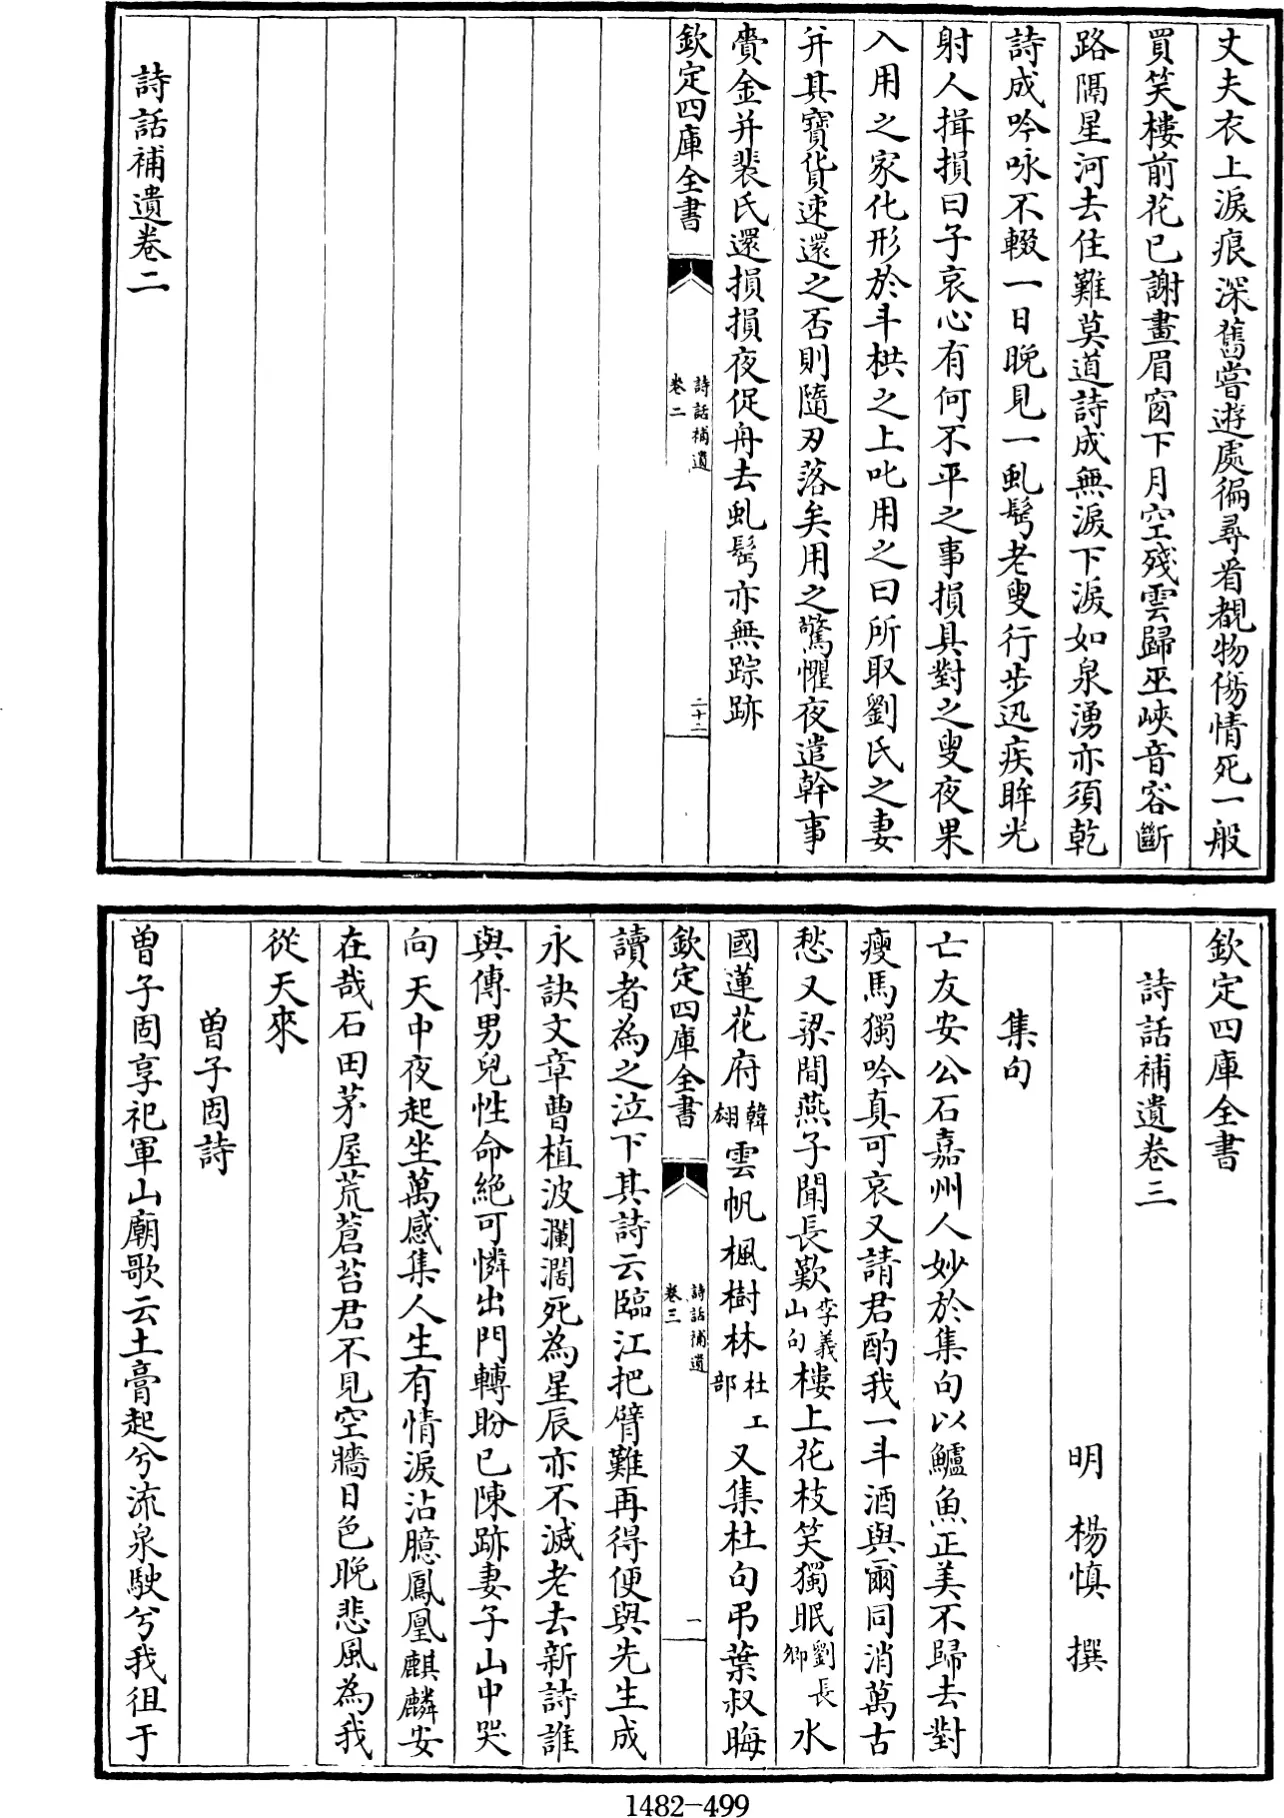 丈夫衣上淚痕深舊嘗遊處徧尋看覩物傷情死一般
買笑樓前花已謝畫眉窗下月空殘雲歸巫峽音容斷
路隔星河去住難莫道詩成無淚下淚如泉湧亦須乾
詩成吟咏不輟一日晚見一虬髯老叟行步迅疾眸光
射人揖損曰子衷心有何不平之事損具對之叟夜果
入用之家化形於斗栱之上叱用之曰所取劉氏之妻
并其寶貨速還之否則隨刃落矣用之驚懼夜遣幹事
賫金并裴氏還損損夜促舟去虬髯亦無踪跡
欽定四庫全書
詩話補遺
卷二
二十二
詩話補遺卷二
欽定四庫全書
詩話補遺卷三
明 楊慎 撰
集句
亡友安公石嘉州人妙於集句以鱸魚正美不歸去對
瘦馬獨吟真可哀又請君酌我一斗酒與爾同消萬古
愁又梁間燕子聞長歎李義山句樓上花枝笑獨眠劉長卿水
國蓮花府韓翃雲帆楓樹林杜工部又集杜句弔葉叔晦
欽定四庫全書
詩話補遺
卷三
一
讀者為之泣下其詩云臨江把臂難再得便與先生成
永訣文章曹植波瀾濶死為星辰亦不滅老去新詩誰
與傳男兒性命絕可憐出門轉盼已陳跡妻子山中哭
向天中夜起坐萬感集人生有情淚沾臆鳳凰麒麟安
在哉石田茅屋荒蒼苔君不見空牆日色晚悲風為我
從天來
曾子固詩
曾子固享祀軍山廟歌云土膏起兮流泉駛兮我徂于
1482-499